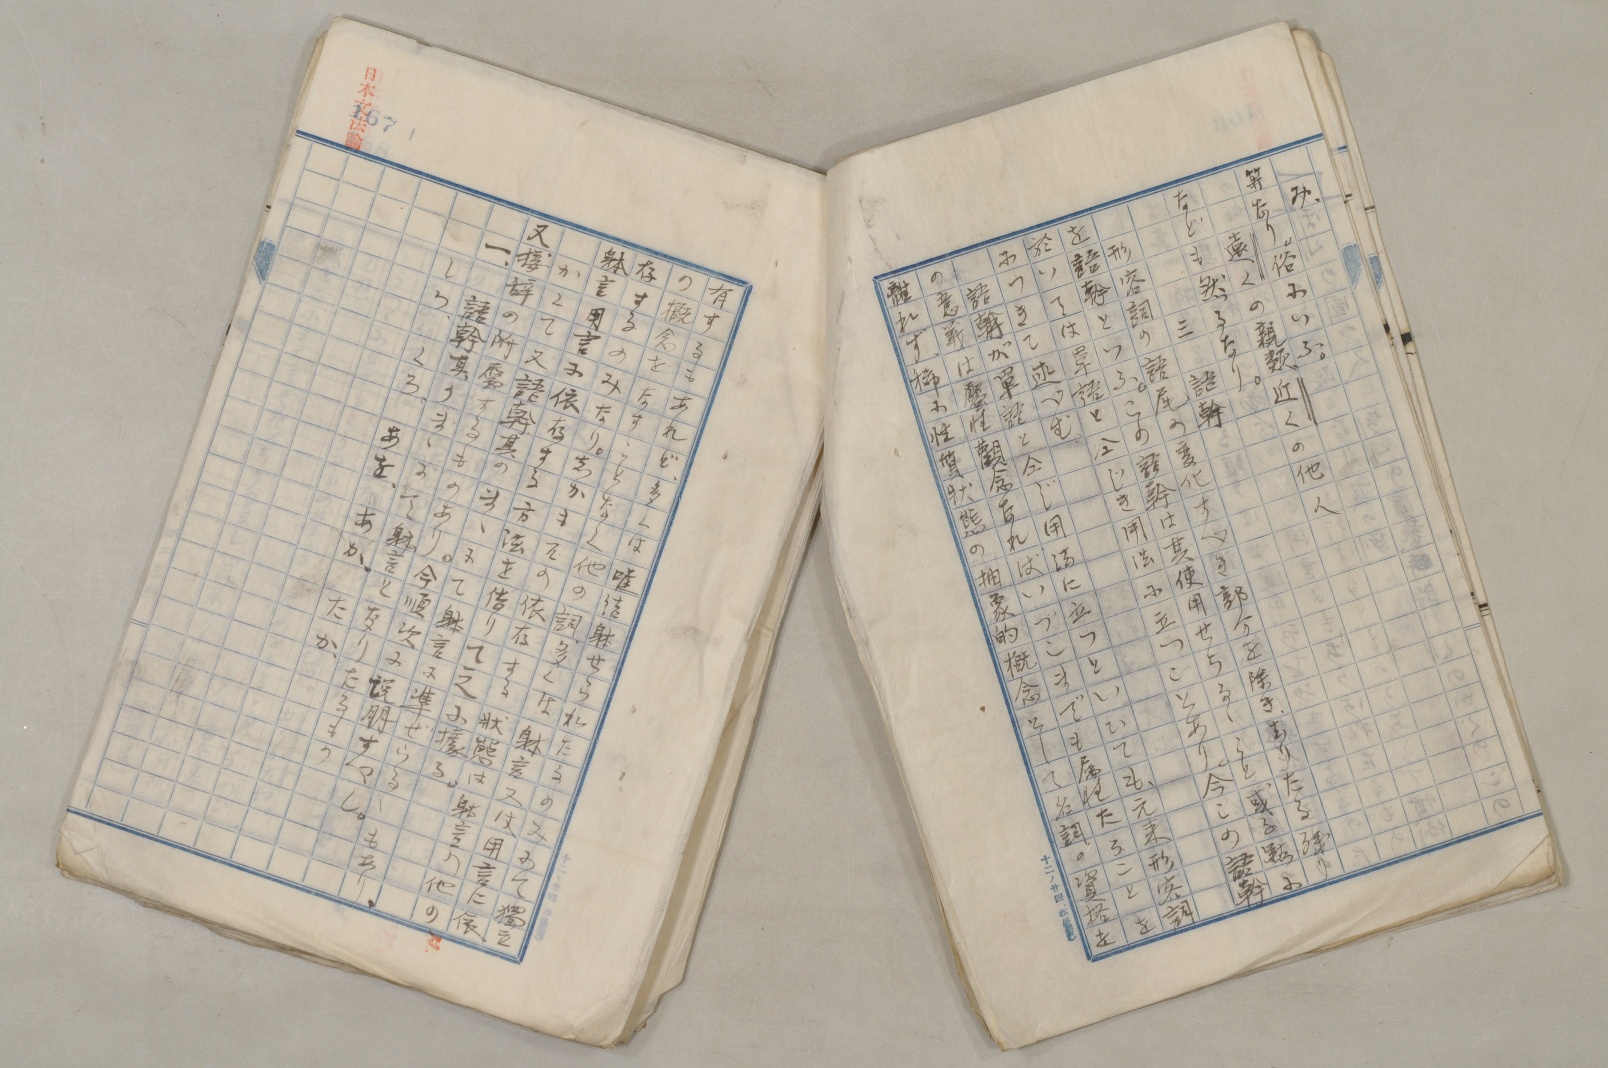 み、
俗にいふ。
遠くの親類近くの他人
等なり。
なども然るなり。
三 語幹
形容詞の語尾の変化すべき部分を除き、ありたる残り
を語幹といふ。この語幹は其使用せらるゝこと或る点に
於いては単語と仝じき用法に立つことあり。今この語幹
につきて述べむ。
語幹が単語と仝じ用法に立つといひても、元来形容詞
の意義は属性観念なればいづこまでも属性たることを
離れず、稀に性質状態の抽象的概念として名詞の資格を
日本文法論
167
有するもあれど、多くは唯結躰せられたるのみにて独立
の概念をなすことなく他の詞、多くは躰言又は用言に依
存するのみなり。しかもその依存する状態は躰言の他の
躰言用言に依存する方法を借りて之に拠る。
かくて又語幹其のまゝにて躰言に準ぜらるゝもあり、
又接辞の附属するものあり。今順次に説明すべし。
一、語幹其のまゝにて躰言となりたるもの
しろ、くろ、あを、あか、たか、